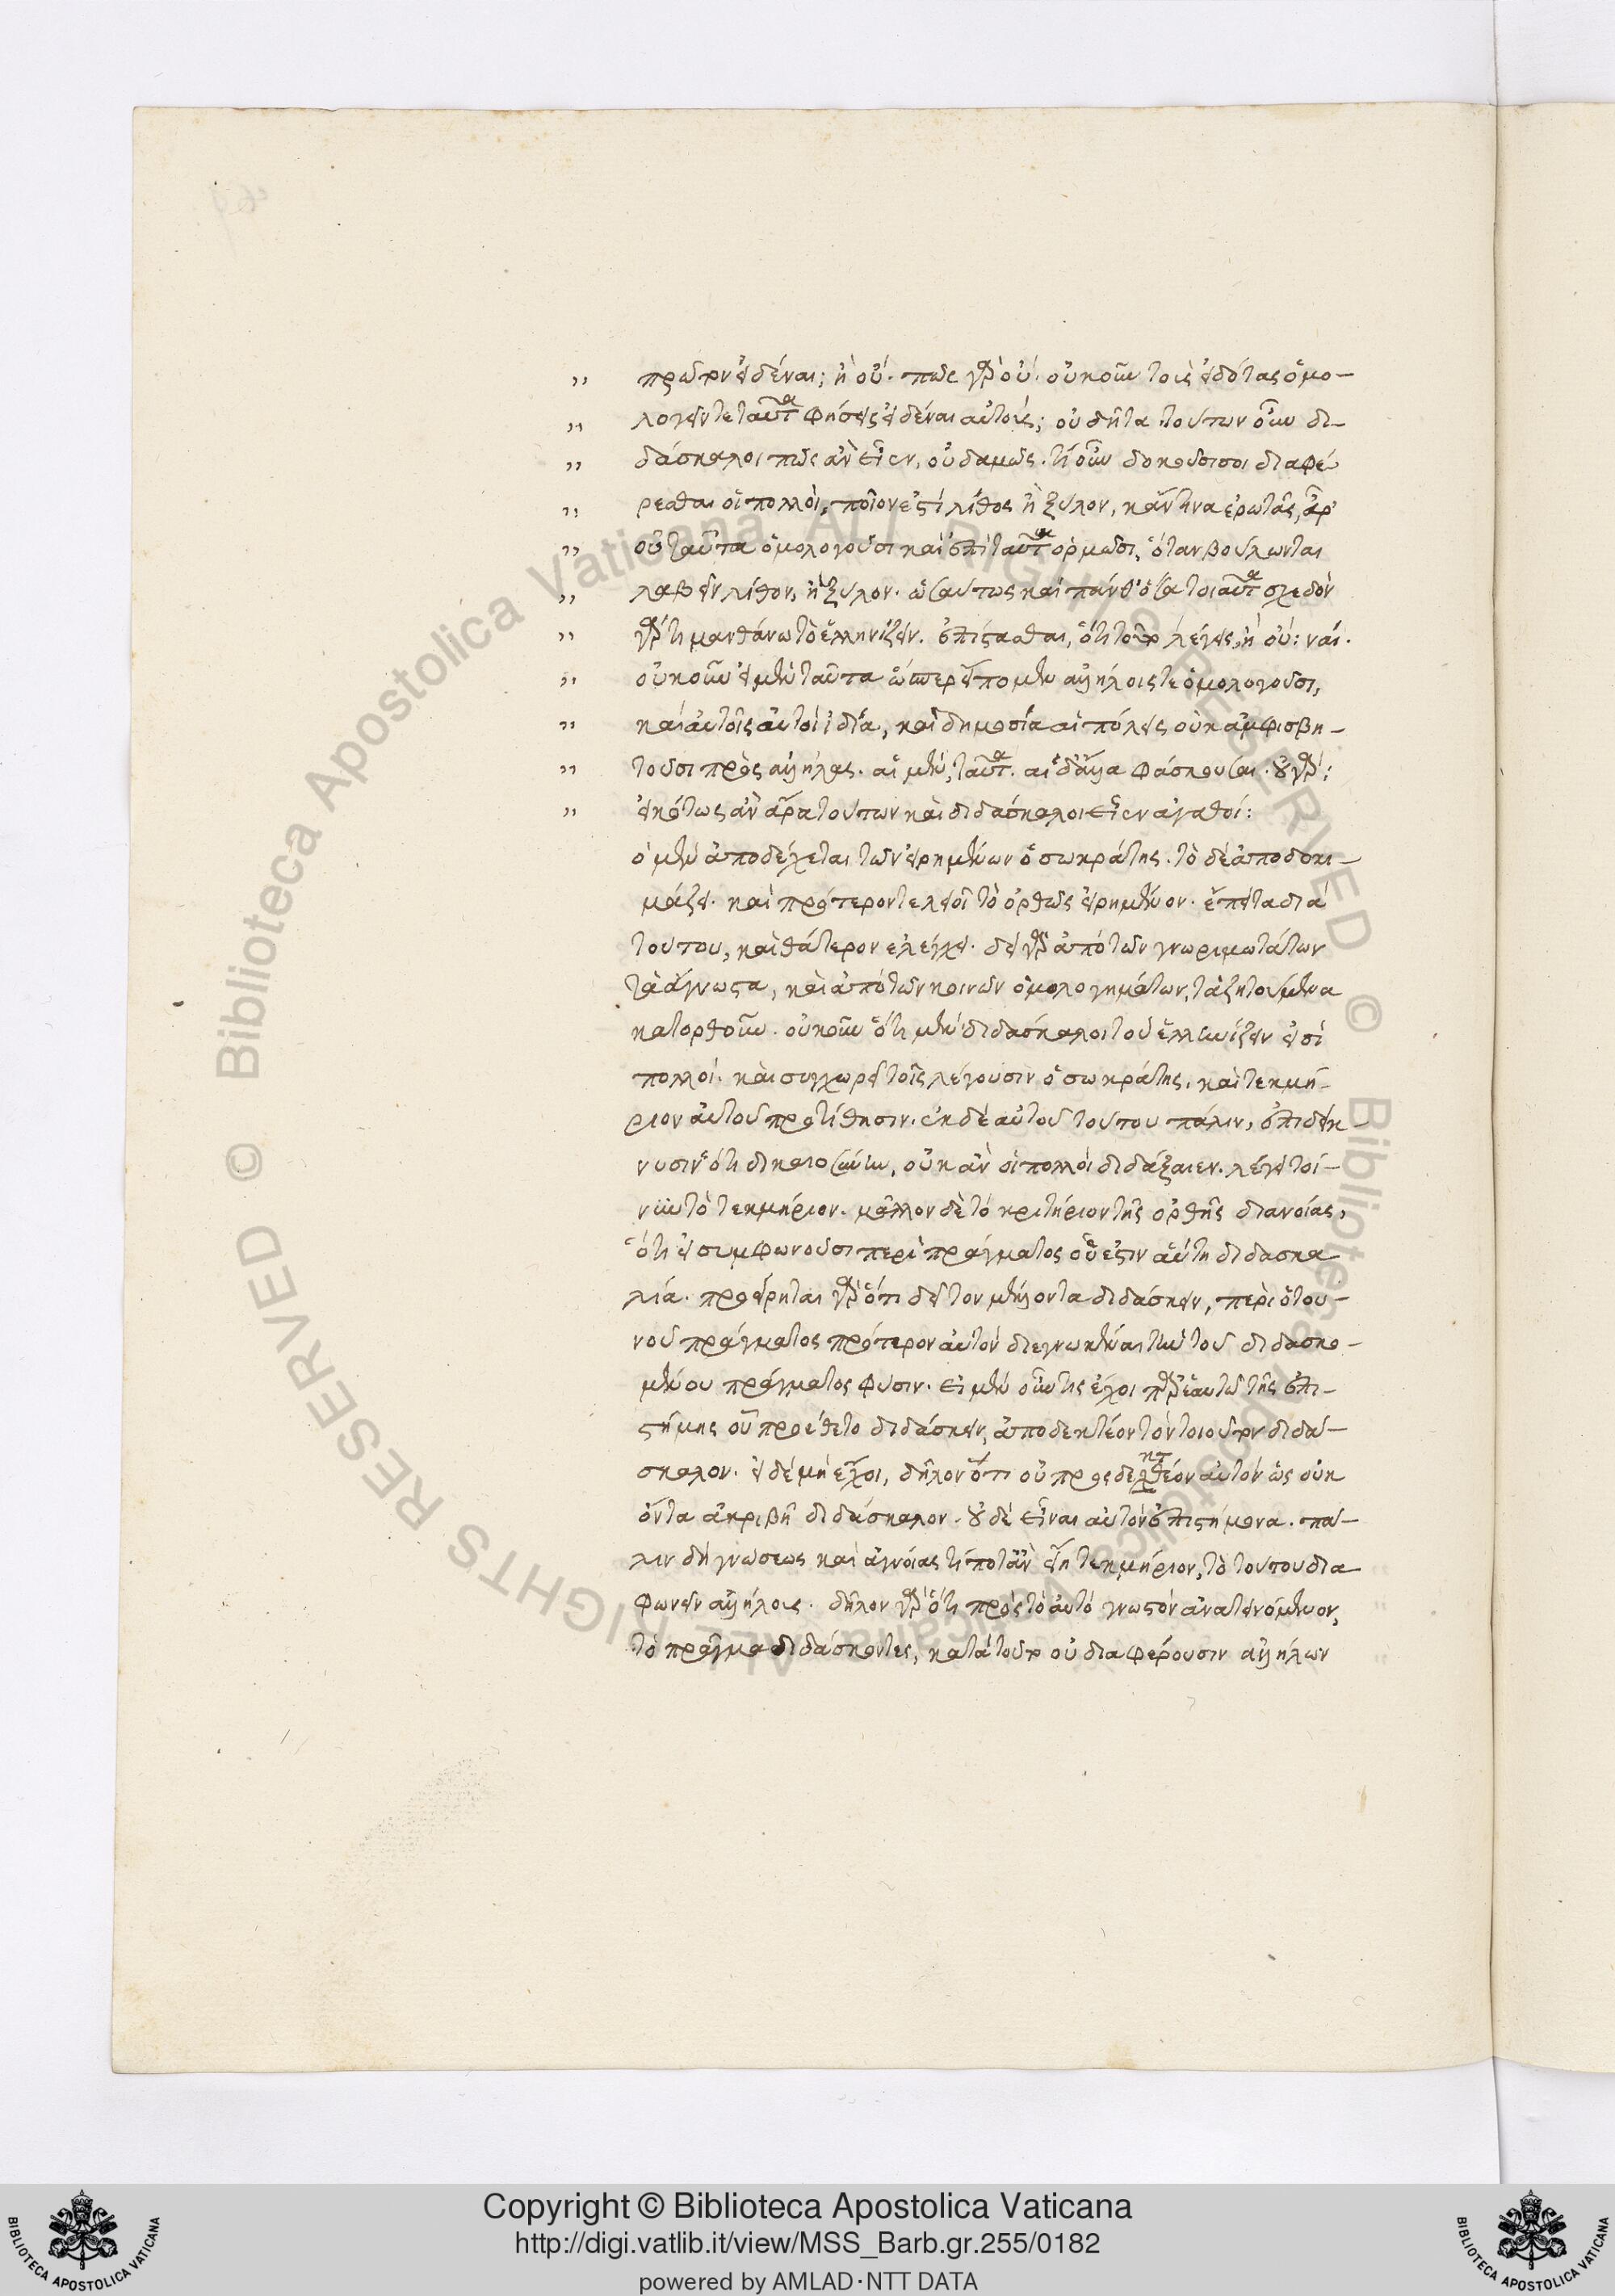 „ πρῶτον εἰδέναι; ἢ οὔ. πῶς γὰρ οὔ. οὐκοῦν τοὺς εἰδότας ὁμο-
„ λογεῖν τε ταῦτα φήσεις εἰδέναι αὐτούς; οὐ δῆτα τούτων οὖν δι-
„ δάσκαλοι πῶς ἂν εἶεν, οὐδαμῶς. τί οὖν δοκοῦσι σοι διαφέ
„ ρεσθαι οἱ πολλοὶ, ποῖον ἐστὶ λίθος ἢ ξύλον, κἄν τινα ἐρωτᾷς, ἆρ'
„ οὐ ταῦτα ὁμολογοῦσι καὶ ἐπὶ ταῦτα ὁρμῶσι, ὅταν βούλωνται
„ λαβεῖν λίθον, ἢ ξύλον. ὡσαύτως καὶ πάνθ' ὅσα τοιαῦτα σχεδὸν
„ γάρ τι μανθάνω τὸ ἑλληνίζειν. ἐπίστασθαι, ὅτι τοῦτο λέγεις, ἢ οὔ: ναί.
„ οὐκοῦν εἰ μὲν ταῦτα ὥσπερ εἴπομεν ἀλλήλοις τε ὁμολογοῦσι,
„ καὶ αὐτοῖς αὐτοὶ ἰδίᾳ, καὶ δημοσίᾳ αἱ πόλεις οὐκ ἀμφισβη-
„ τοῦσι πρὸς ἀλλήλας. αἱ μὲν, ταῦτα. αἱ δ' ἄλλα φάσκουσαι. οὐ γάρ;
„ εἰκότως ἂν ἄρα τούτων καὶ διδάσκαλοι εἶεν ἀγαθοί:
ὁ μὲν ἀποδέχεται τῶν εἰρημένων ὁ σωκράτης. τὸ δὲ ἀποδοκι-
μάζει. καὶ πρότερον τελειοῖ τὸ ὀρθῶς εἰρημένον. ἔπειτα διὰ
τούτου, καὶ θάτερον ἐλέγχει. δεῖ γὰρ ἀπὸ τῶν γνωριμωτάτων
τὰ ἄγνωστα, καὶ ἀπὸ τῶν κοινῶν ὁμολογημάτων, τὰ ζητούμενα
κατορθοῦν. οὐκοῦν ὅτι μὲν διδάσκαλοι τοῦ ἑλληνίζειν εἰσὶ
πολλοί. καὶ συγχωρεῖ τοῖς λέγουσιν ὁ σωκράτης. καὶ τεκμή-
ριον αὐτοῦ προτίθησιν. ἐκ δὲ αὐτοῦ τούτου πάλιν, ἐπιδείκ-
νυσιν ὅτι δικαιοσύνην, οὐκ ἂν οἱ πολλοὶ διδάξαιεν. λέγει τοί-
νυν τὸ τεκμήριον. μᾶλλον δὲ τὸ κριτήριον τῆς ὀρθῆς διανοίας,
ὅτι εἰ συμφωνοῦσι περὶ πράγματος οὗ ἐστιν αὕτη διδασκα
λία. προείρηται γὰρ ὅτι δεῖ τον μέλλοντα διδάσκειν, περὶ ὁτου-
νοῦ πράγματος πρότερον αὐτὸν διεγνωκέναι τὴν τοῦ διδασκο-
μένου πράγματος φύσιν. εἰ μὲν οὖν τις ἔχοι παρ' ἑαυτῷ τῆς ἐπι-
στήμης οὗ προέθετο διδάσκειν, ἀποδεκτέον τὸν τοιοῦτον διδά-
σκαλον. εἰ δὲ μὴ ἔχοι, δῆλον ὅτι οὐ προσδεκτέον αὐτὸν ὡς οὐκ
ὄντα ἀκριβῆ διδάσκαλον. οὐδὲ εἶναι αὐτὸν ἐπιστήμονα. πά-
λιν δὴ γνώσεως καὶ ἀγνοίας τί ποτ' ἂν εἴη τεκμήριον, τὸ τούτου δια
φωνεῖν ἀλλήλοις. δῆλον γὰρ ὅτι πρὸς τὸ αὐτὸ γνωστὸν ἀνατεινόμενον,
τὸ πρᾶγμα διδάσκοντες, κατὰ τοῦτο οὐ διαφέρουσιν ἀλλήλων
© Biblioteca Apostolica Vaticana ALL RIGHTS RESERVED © Biblioteca Apostolica Vaticana ALL RIGHTS RESERVED
Copyright © Biblioteca Apostolica Vaticana
http://digi.vatlib.it/view/MSS_Barb.gr.255/0182
powered by AMLAD·NTT DATA
BIBLIOTECA APOSTOLICA VATICANA
BIBLIOTECA APOSTOLICA VATICANA